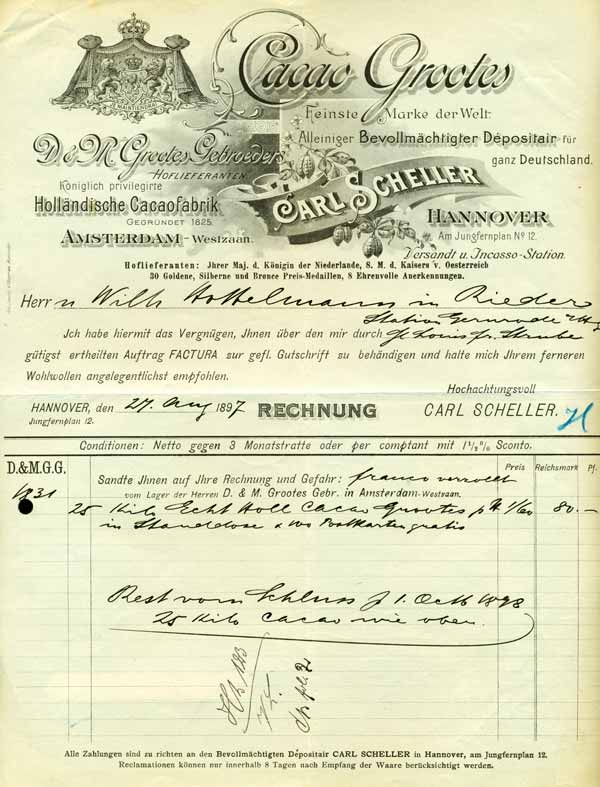 Cacao Grootes
Feinste Marke der Welt.
Alleiniger Bevollmächtigter Dépositair für
ganz Deutschland.
D. & M. Grootes Gebroeders
HOFLIEFERANTEN.
Königlich privilegirte
Holländische Cacaofabrik
GEGRÜNDET 1825.
AMSTERDAM-Westzaan.
CARL SCHELLER
HANNOVER
Am Jungfernplan No 12.
Versandt u. Incasso-Station.
Hoflieferanten: Jhrer Maj. d. Königin der Niederlande, S. M. d. Kaisers v. Oesterreich
30 Goldene, Silberne und Bronce Preis-Medaillen, 8 Ehrenvolle Anerkennungen.
Herrn Wilh Hottelmann in Rieder
Station
Ich habe hiermit das Vergnügen, Jhnen über den mir durch
gütigst ertheilten Auftrag FACTURA zur gefl. Gutschrift zu behändigen und halte mich Jhrem ferneren
Wohlwollen angelegentlichst empfohlen.
Hochachtungsvoll
HANNOVER, den 27 Aug 1897 RECHNUNG CARL SCHELLER.
Jungfernplan 12.
Conditionen: Netto gegen 3 Monatstratte oder per comptant mit 1½% Sconto.
D.&M.G.G. Preis Reichsmark Pf.
Sandte Jhnen auf Jhre Rechnung und Gefahr: franco verzollt
vom Lager der Herren D. & M. Grootes Gebr. in Amsterdam-Westzaan.
1831
25 Kilo Echt Holl Cacao Grootes p ½ 1/60 80.—
in Standdose & 100 Postkarten gratis
Rest vom Schluss p 1. Octb 1898
25 Kilo Cacao wie oben.
Alle Zahlungen sind zu richten an den Bevollmächtigten Dépositair CARL SCHELLER in Hannover, am Jungfernplan 12.
Reclamationen können nur innerhalb 8 Tagen nach Empfang der Waare berücksichtigt werden.